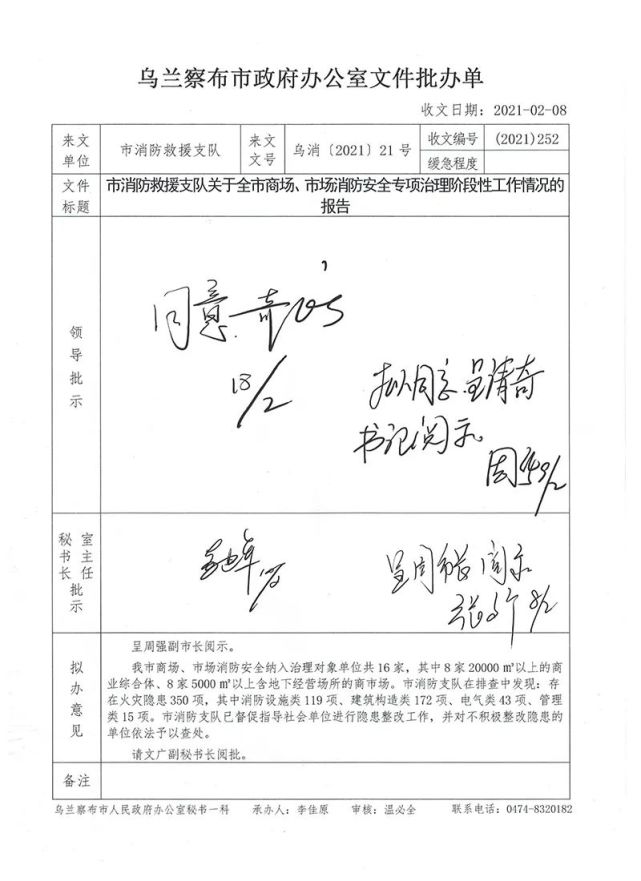 乌兰察布市政府办公室文件批办单
收文日期：2021-02-08
来文单位
市消防救援支队
来文文号
乌消〔2021〕21 号
收文编号
(2021)252
缓急程度
文件标题
市消防救援支队关于全市商场、市场消防安全专项治理阶段性工作情况的
报告
领导批示
同意.奇
18/2
拟同意,呈请奇
书记阅示。
周 9/2
秘书长 室主任 批示
呈周 阅示
张 8/2
拟办意见
呈周强副市长阅示。
我市商场、市场消防安全纳入治理对象单位共 16 家，其中 8 家 20000 ㎡以上的商
业综合体、8 家 5000 ㎡以上含地下经营场所的商市场。市消防支队在排查中发现：存
在火灾隐患 350 项，其中消防设施类 119 项、建筑构造类 172 项、电气类 43 项、管理
类 15 项。市消防支队已督促指导社会单位进行隐患整改工作，并对不积极整改隐患的
单位依法予以查处。
请文广副秘书长阅批。
备注
乌兰察布市人民政府办公室秘书一科 承办人：李佳原 审核：温必全 联系电话：0474-8320182